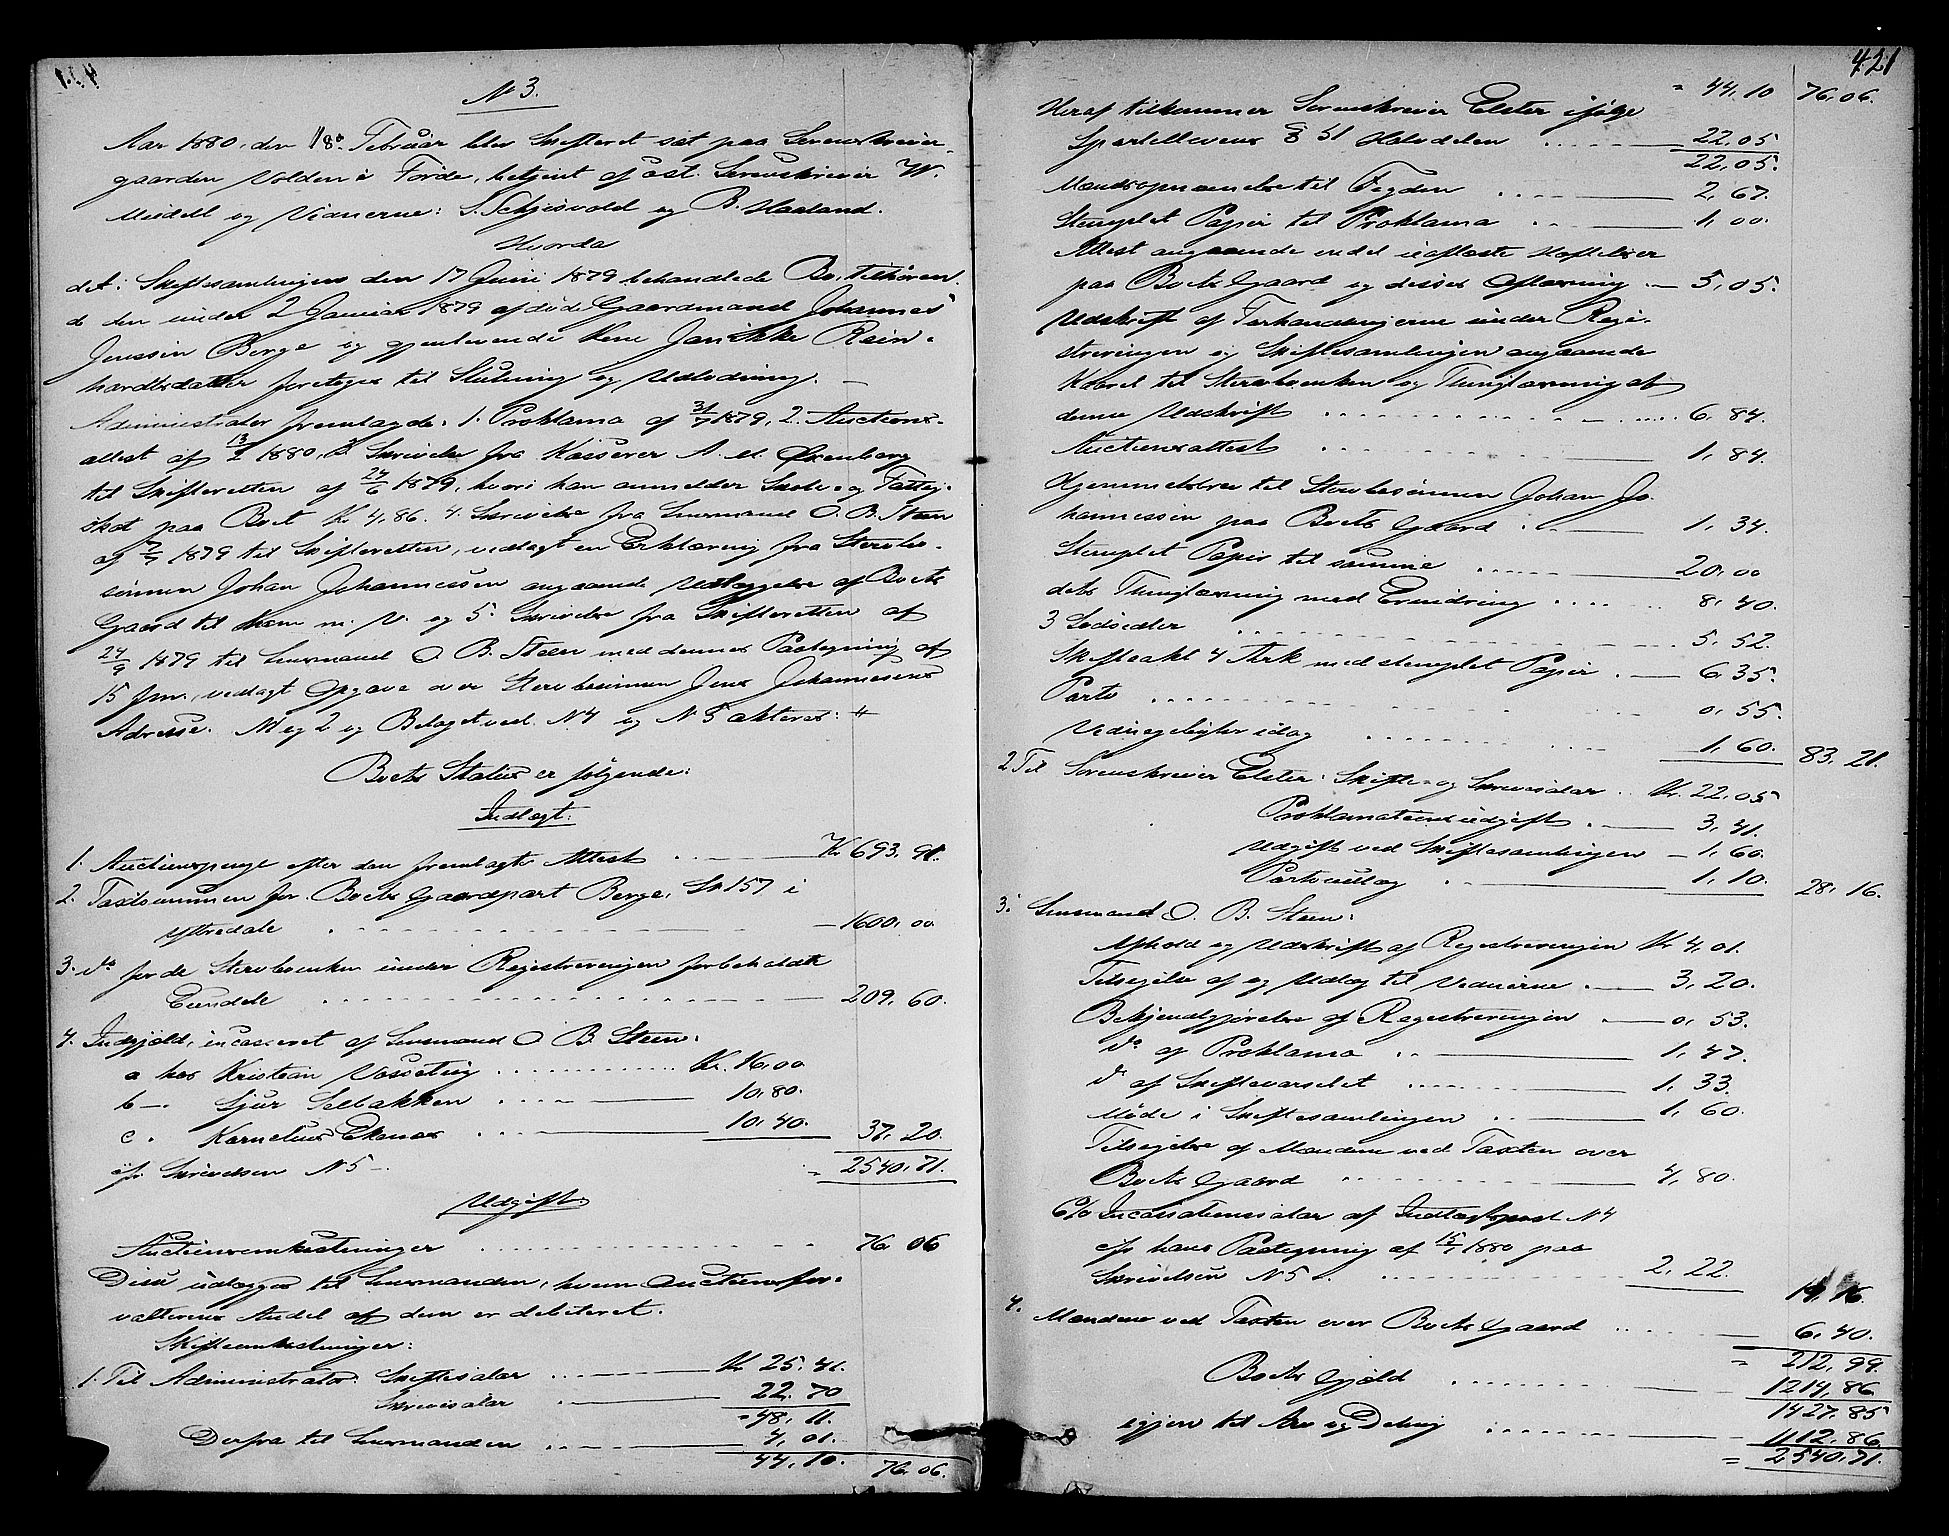 N 3.
Aar 1880, den 18de Februar blev Skifteret sat paa Sorenskriver-
gaarden Volden i Førde, betjent af const. Sorenskriver W.
Midell og Vidnerne: S. Schjesvold og B. Haaland.
Hvorda
det i Skiftesamlingen den 17 Juni 1879 behandlede Bo, tilhøren-
de den under 2 Januar 1879 afdøde Gaardmand Johannes
Jenssen Berge og gjenlevende Kone Jannikke Rein-
hardtsdatter foretoges til Slutning og Udlodning. —
Administrator fremlagde: 1. Proklama af 31/7 1879, 2. Auctions-
attest af 13/2 1880, 3. Skrivelse fra Kasserer A. M. Øxenberg
til Skifteretten af 24/6 1879, hvori han anmelder Skole- og Fattig-
skat paa Boet Kr 4,86. 4. Skrivelse fra Lensmand O. B. Steen
af 7/7 1879 til Skifteretten, vedlagt en Erklæring fra Stervbo-
sønnen Johan Johannessen angaaende Udlæggelse af Boets
Gaard til ham m. V. og 5. Skrivelse fra Skifteretten af
24/9 1879 til Lensmand O. B. Steen med dennes Paategning af
15 f. m., vedlagt Opgave over Stervbosønnen Jens Johannesens
Adresse. N 1 og 2 og Bilaget ved N 4 og N 5 akteres: "
Boets Status er følgende:
Indtægt:
1. Auctionspenge efter den fremlagte Attest . . . — Kr 693,91.
2. Taxtsummen for Boets Gaardpart Berge, Sk 157 i
Ytredale . . . — 1600,00
3. do for de Stervboenken under Registreringen forbeholdte
Eiendele . . . — 209,60.
4. Indgjæld, incasseret af Lensmand O B. Steen:
a hos Kristian Vassetvig . . . Kr. 16,00
b —. Sjur Selbakken . . . — 10,80.
c. Kornelius Ekenæs . . . — 10,40. 37,20.
cfr. Skrivelsen N 5 —. = 2540,71.
Udgift
Auctionsomkostninger . . . 76 06
Disse udlægges til Lensmanden, hvem Auctionsfor-
valterens Andel af dem er debiteret.
Skifteomkostninger:
1. Til Administrator: Skiftesalær . . . — Kr 25,41.
Skriversalær — 22,70
= 48,11.
Derfra til Lensmanden . . . — 4,01.
44,10. 76,06.
421
= 44,10 76,06.
Heraf tilkommer Sorenskriver Elster ifølge
Sportellovens § 51 Halvdelen . . . — 22,05
22,05.
Mandsopnævnelse til Fogden . . . — 2,67.
Stemplet Papir til Proklama . . . — 1,00.
Attest angaaende endel uaflæste Hæftelser
paa Boets Gaard og disses Aflæsning . — 5,05.
Udskrift af Forhandlingerne under Regi-
streringen og Skiftesamlingen angaaende
Kaaret til Stervboenken og Thinglæsning af
denne Udskrift . . . 6,84.
Auctionsattest . . . — 1,84.
Hjemmelsbrev til Stervbosønnen Johan Jo-
hannessen paa Boets Gaard . — 1,34.
Stemplet Papir til samme . . . — 20,00
dets Thinglæsning med Erindring . . . 8,40.
3 Lodsedler . . . — 5,52.
Skifteakt 4 Ark med stemplet Papir . — 6,35.
Porto . . . 0,55.
Vidnegodtgj. idag . . . 1,60. 83,21.
2 Til Sorenskriver Elster: Skifte- og Skriversalær . . Kr. 22,05
Proklamationsudgift . — 3,41.
Udgift ved Skiftesamlingen — 1,60.
Portoudlæg . . — 1,10. 28,16.
3. Lensmand O. B. Steen:
Afhold og Udskrift af Registreringen Kr 4,01.
Tilsigelse af og Udlæg til Vidnerne . — 3,20.
Bekjendtgjørelse af Registreringen — 0,53.
do af Proklama . . — 1,47.
do af Skiftevarselet . . . — 1,33.
Møde i Skiftesamlingen . . — 1,60.
Tilsigelse af Mændene ved Taxten over
Boets Gaard . . . — 4,80.
6% Incassationssalær af Indtægtspost N 4
cfr. hans Paategning af 15/1 1880 paa
Skrivelsen N 5 . . . 2,22.
19,16.
4. Mændene ved Taxten over Boets Gaard . . . — 6,40.
= 212,99.
Boets Gjæld . . . — 1214,86
1427,85
igjen til Arv og Deling . . . — 1112,86
= 2540,71.